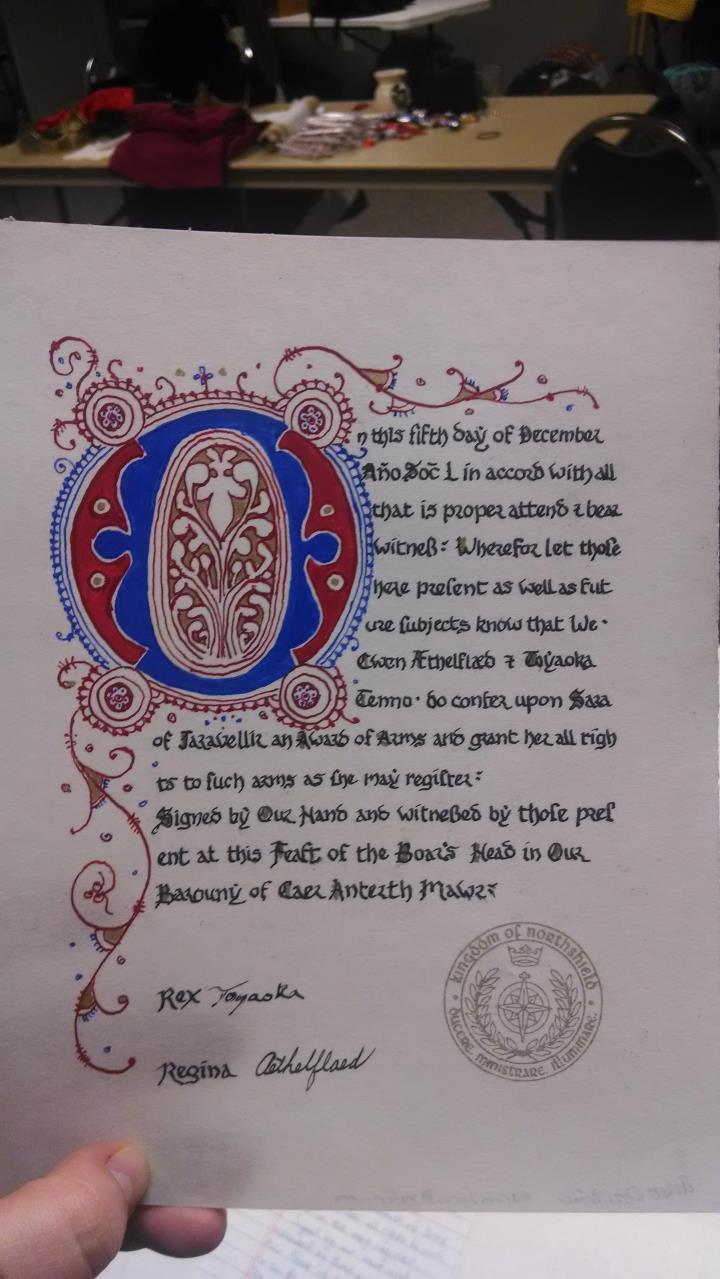 On this fifth day of December
Año Soc̃ L in accord with all
that is proper attend ⁊ bear
witneß: Wherefor let thoſe
here preſent as well as fut
ure ſubjects know that We·
Cwen Æthelflæd ⁊ Toyaoka
Tenno· do confer upon Sara
of Jaravellir an Award of Arms and grant her all righ
ts to ſuch arms as ſhe may regiſter:
Signed by Our Hand and witneßed by thoſe preſ
ent at this Feaſt of the Boar's Head in Our
Barouny of Caer Anterth Mawr:
Rex Toyaoka
Regina Aethelflaed
kingdom of northshield
ducere, ministrare, illuminare.